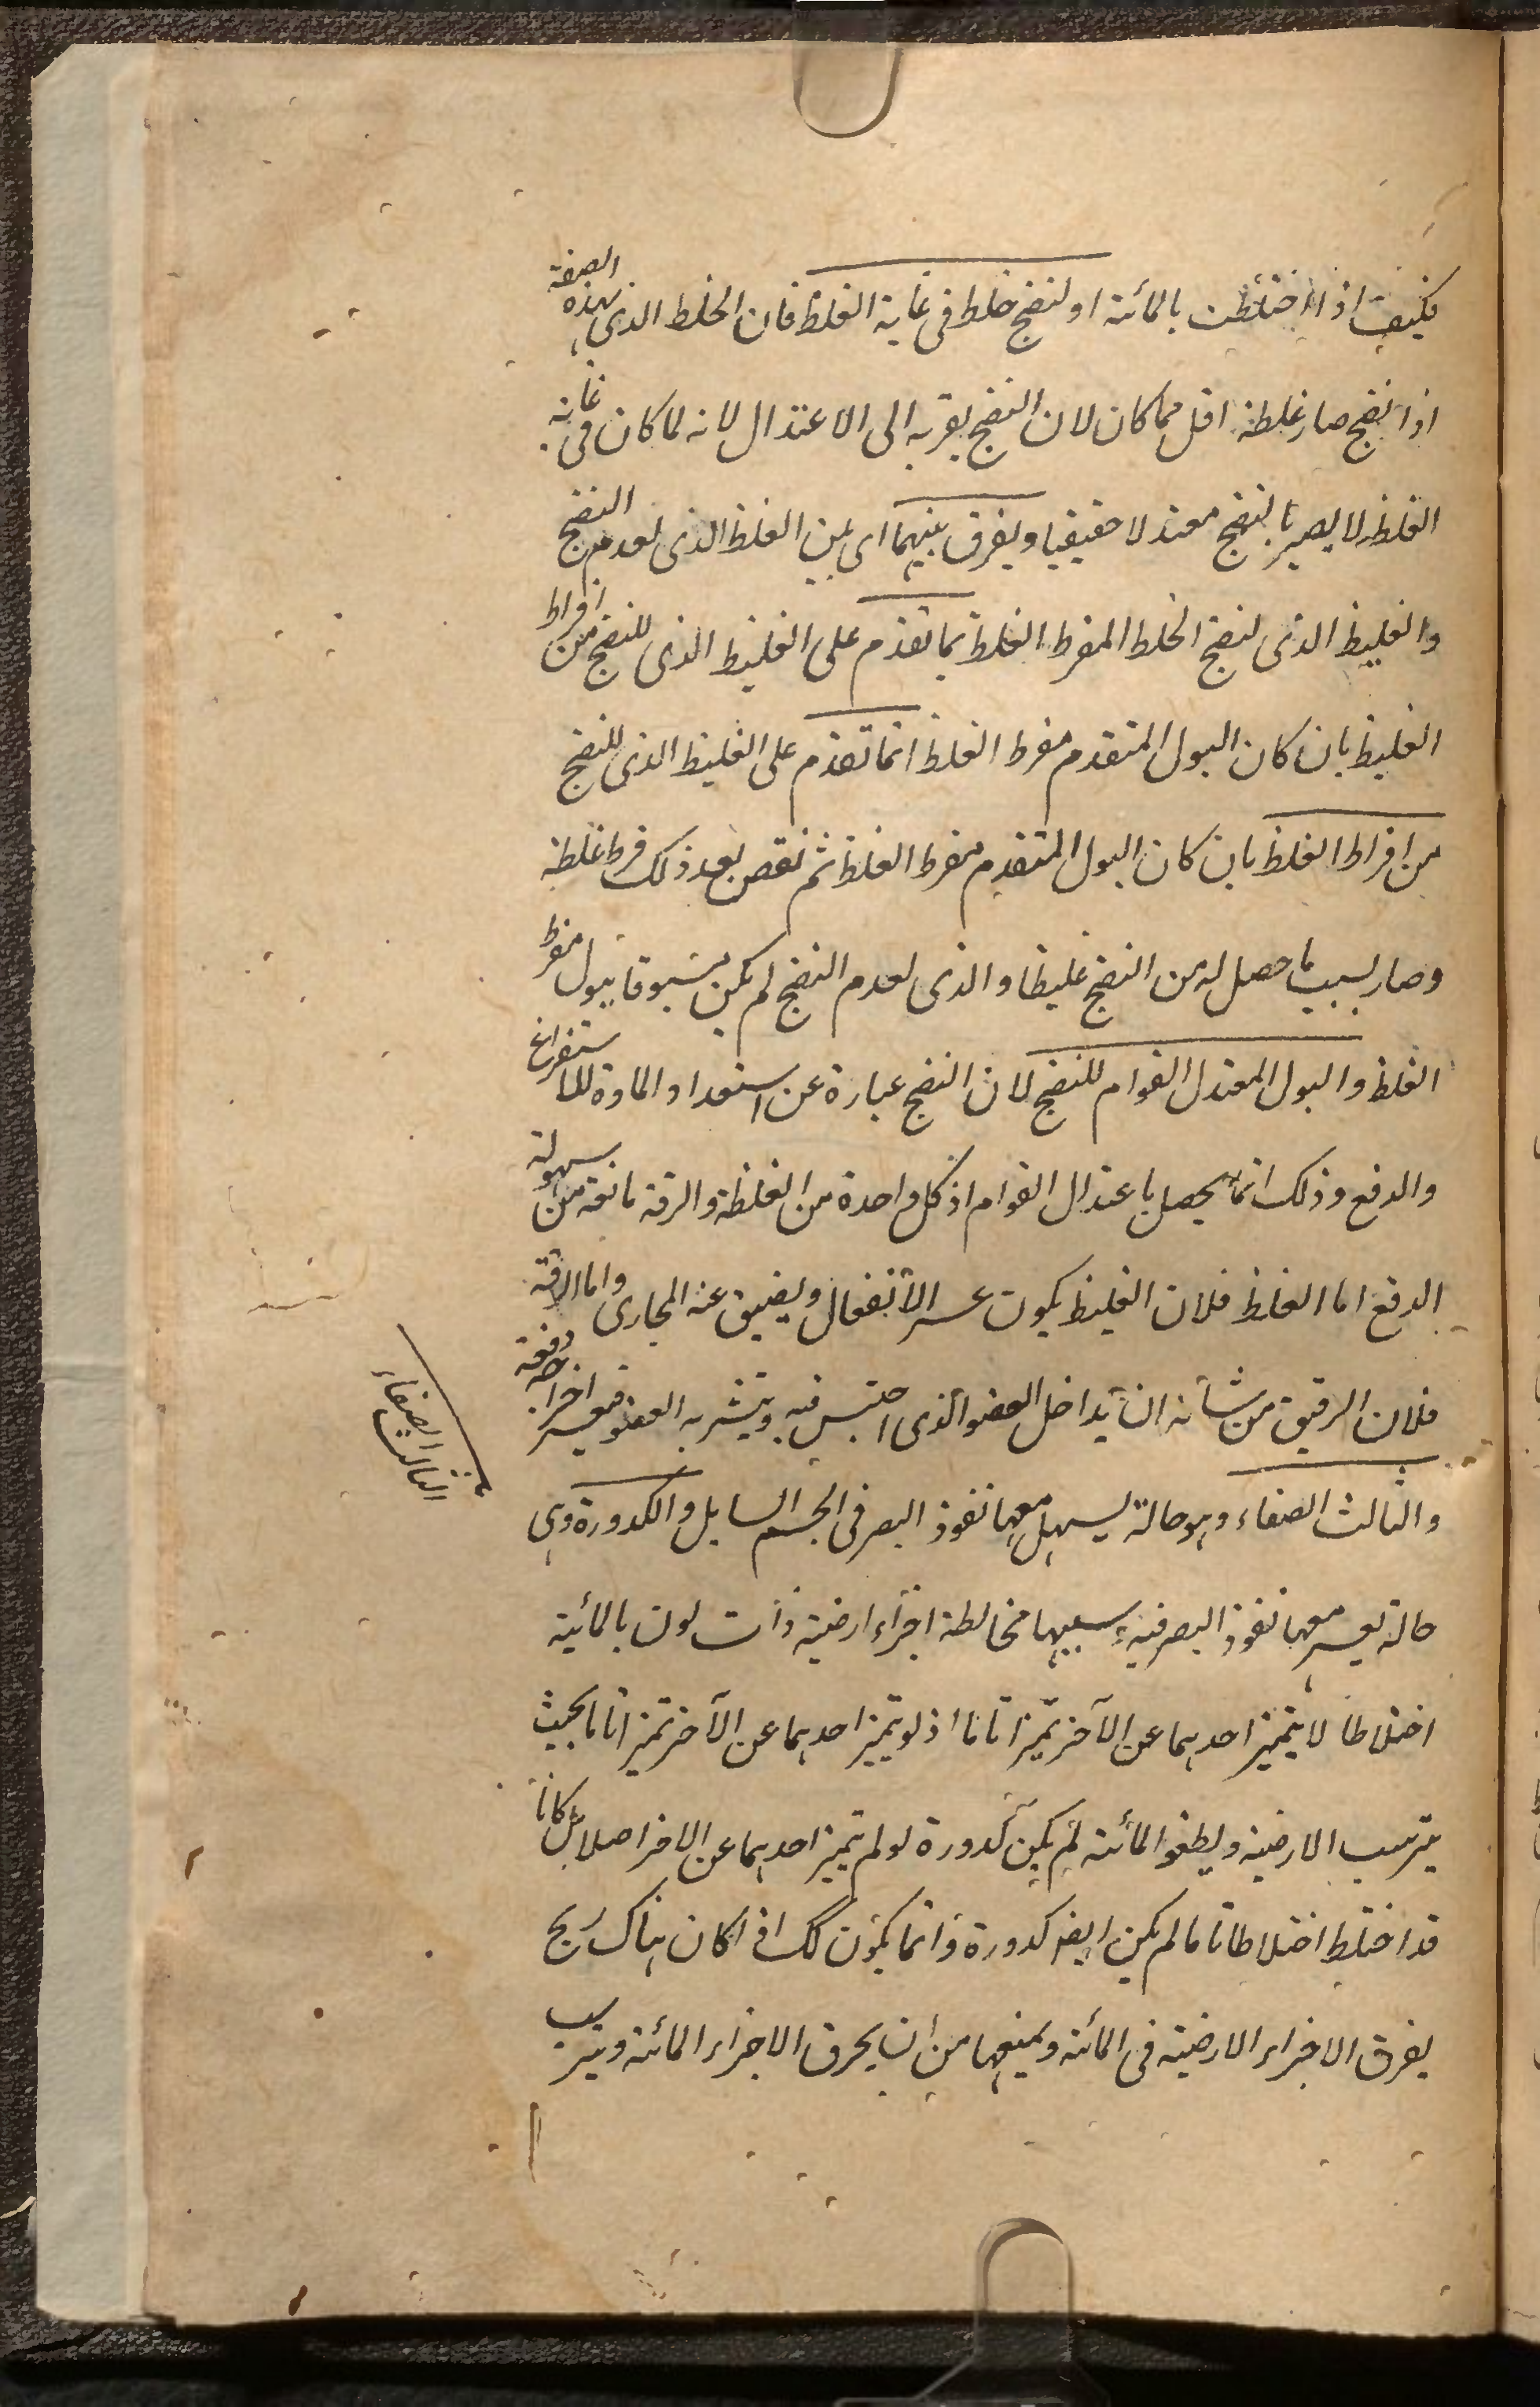 فكيف اذا اختلطت بالمائية او لنضج خلط فى غاية الغلظ فان الخلط الذى بهذه الصفة
اذا نضج صار غلظه اقل مما كان لان النضج يقربه الى الاعتدال لانه لما كان فى غاية
الغلظ لا يصير بالنضج معتدلا حقيقيا ويفرق بينهما اى بين الغلظ الذى لعدم النضج
والغليظ الذى لنضج الخلط المفرط الغلظ بما تقدم على الغليظ الذى للنضج من افراط
الغليظ بان كان البول المتقدم مفرط الغلظ انما تقدم على الغليظ الذى للنضج
من افراط الغلظ بان كان البول المتقدم مفرط الغلظ ثم نقص بعد ذلك فرط غلظه
وصار بسبب ما حصل له من النضج غليظا والذى لعدم النضج لم يكن مسبوقا ببول مفرط
الغلظ والبول المعتدل القوام للنضج لان النضج عبارة عن استعداد المادة للاستفراغ
والدفع وذلك انما يحصل باعتدال القوام اذ كل واحدة من الغلظة والرقة مانعة من سهولة
الدفع اما الغلظ فلان الغليظ يكون عسر الانفعال ويضيق عنه المجارى واما الرقة
فلان الرقيق من شأنه ان يداخل العضو الذى احتبس فيه ويتشربه العضو فيعسر اخراجه دفعة
والثالث الصفاء وهو حالة يسهل معها نفوذ البصر فى الجسم السايل والكدورة وهى
الثالث الصفاء
حالة يعسر معها نفوذ البصر فيه وسببها مخالطة اجزاء ارضية ذات لون بالمائية
اختلاطا لا يتميز احدهما عن الآخر تميزا تاما اذ لو يتميز احدهما عن الآخر تميزا تاما بحيث
يترسب الارضية ويطفو المائية لم يكن كدورة لو لم يتميز احدهما عن الاخر اصلا بل كانا
قد اختلط اختلاطا تاما لم يكن ايضا كدورة وانما يكون كك اذا كان هناك ريح
يفرق الاجزاء الارضية فى المائية ويمنعها من ان يخرق الاجزاء المائية ويترسب